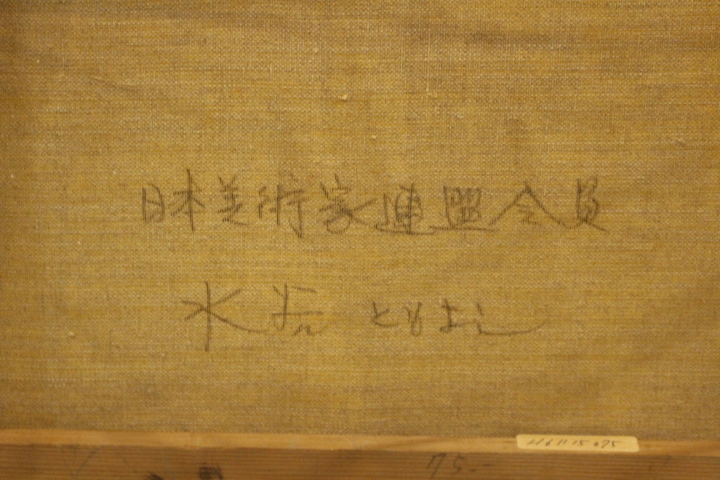 日本美術家連盟会員
水谷 ともよし
75.-